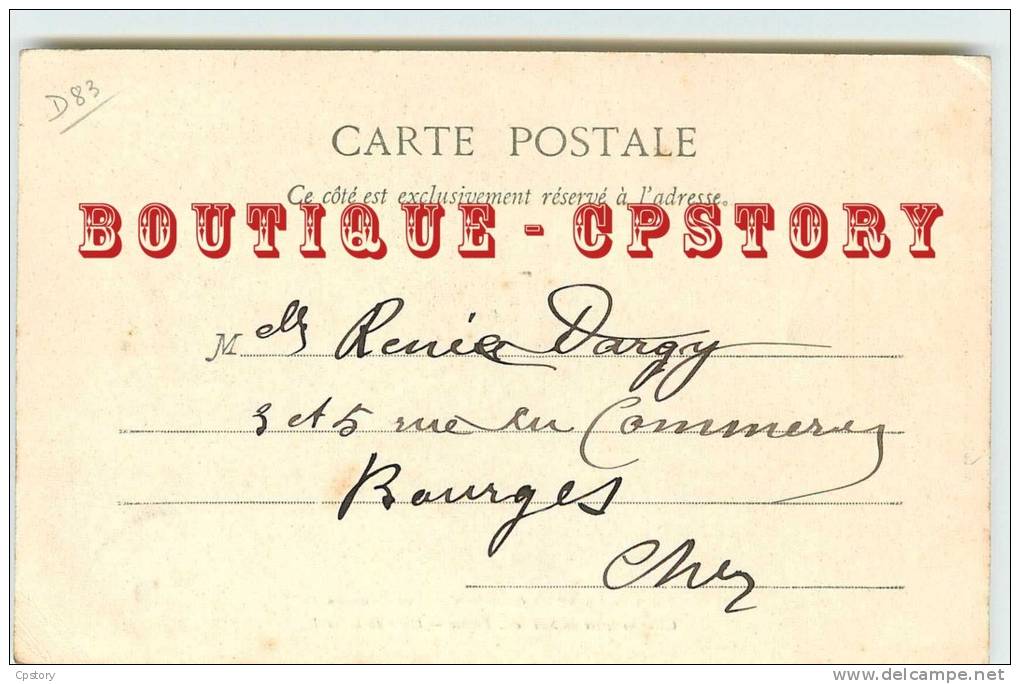 D83
CARTE POSTALE
Ce côté est exclusivement réservé à l'adresse.
BOUTIQUE - CPSTORY
Melle Renée Dargy
3 et 5 rue du Commerce
Bourges
Cher
Cpstory
delcampe.net